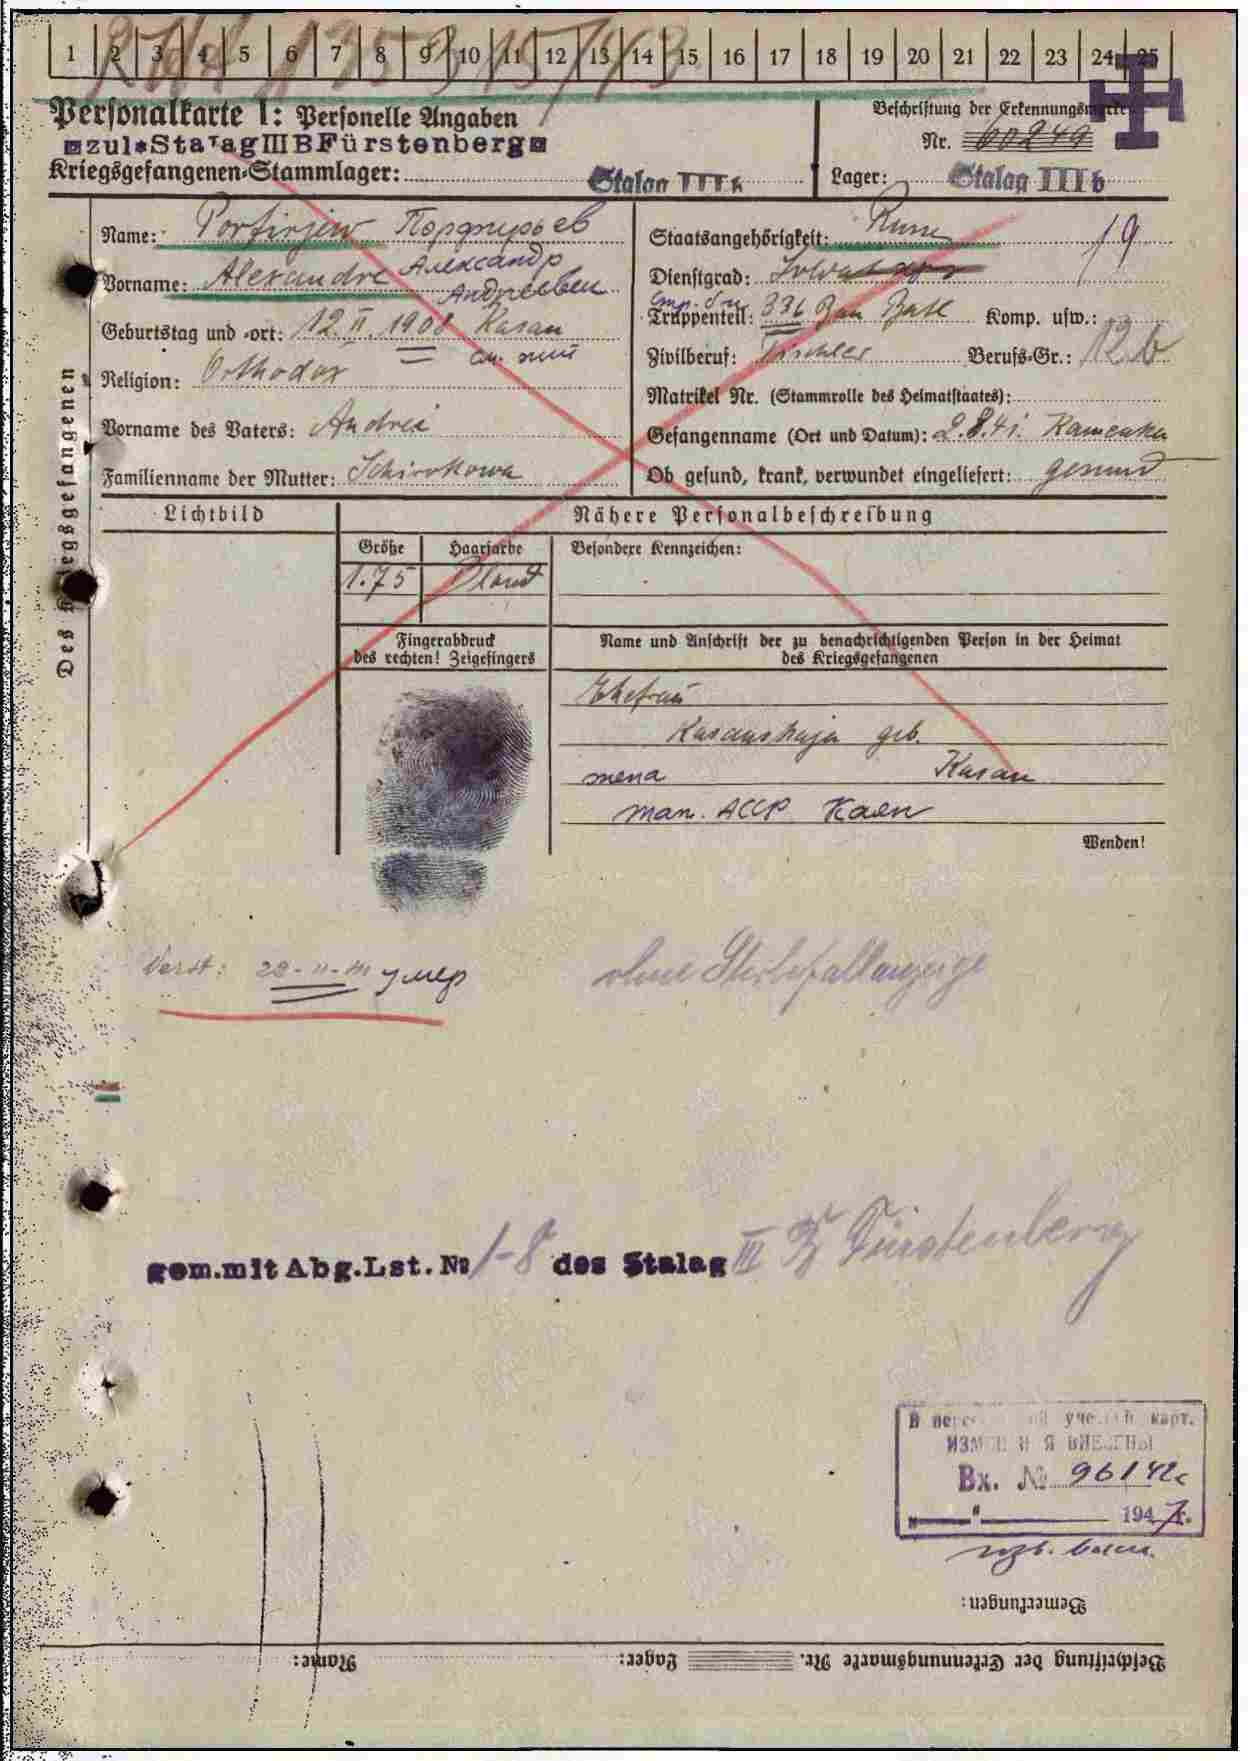 1 2 3 4 5 6 7 8 9 10 11 12 13 14 15 16 17 18 19 20 21 22 23 24 25
Personalkarte I: Personelle Angaben
zul*Stalag III B Fürstenberg
Kriegsgefangenen-Stammlager: Stalag III b
Beschriftung der Erkennungsmarke
Nr. 60249
Lager: Stalag III b
Des Kriegsgefangenen
Name: Porfirjew Порфирьев
Vorname: Alexandre Александр
Андреевич
Geburtstag und -ort: 12.II.1908 Kasan
Religion: Orthodox
Vorname des Vaters: Andrei
Familienname der Mutter: Schirokowa
Staatsangehörigkeit: Russe 19
Dienstgrad: Soldat
Truppenteil: 336 Bau Batl Komp. usw.:
Zivilberuf: Tischler Berufs-Gr.: 12b
Matrikel Nr. (Stammrolle des Heimatstaates):
Gefangenname (Ort und Datum): 2.8.41. Kamenka
Ob gesund, krank, verwundet eingeliefert: gesund
Lichtbild
Nähere Personalbeschreibung
Größe Haarfarbe Besondere Kennzeichen:
1.75 Blond
Fingerabdruck
des rechten! Zeigefingers
Name und Anschrift der zu benachrichtigenden Person in der Heimat
des Kriegsgefangenen
Ehefrau
Kasanskaja geb.
жена Kasan
АССР
Wenden!
Verst: 22-11-41 умер
ohne Sterbefallanzeige
gem. mit Abg. Lst. № 1-8 des Stalag III B Fürstenberg
В учетн карт.
ИЗМЕНЕНИЯ ВНЕСЕНЫ
Вх. № 96142с
" " 1947г.
Bemerkungen:
Beschriftung der Erkennungsmarke Nr. Lager: Name: